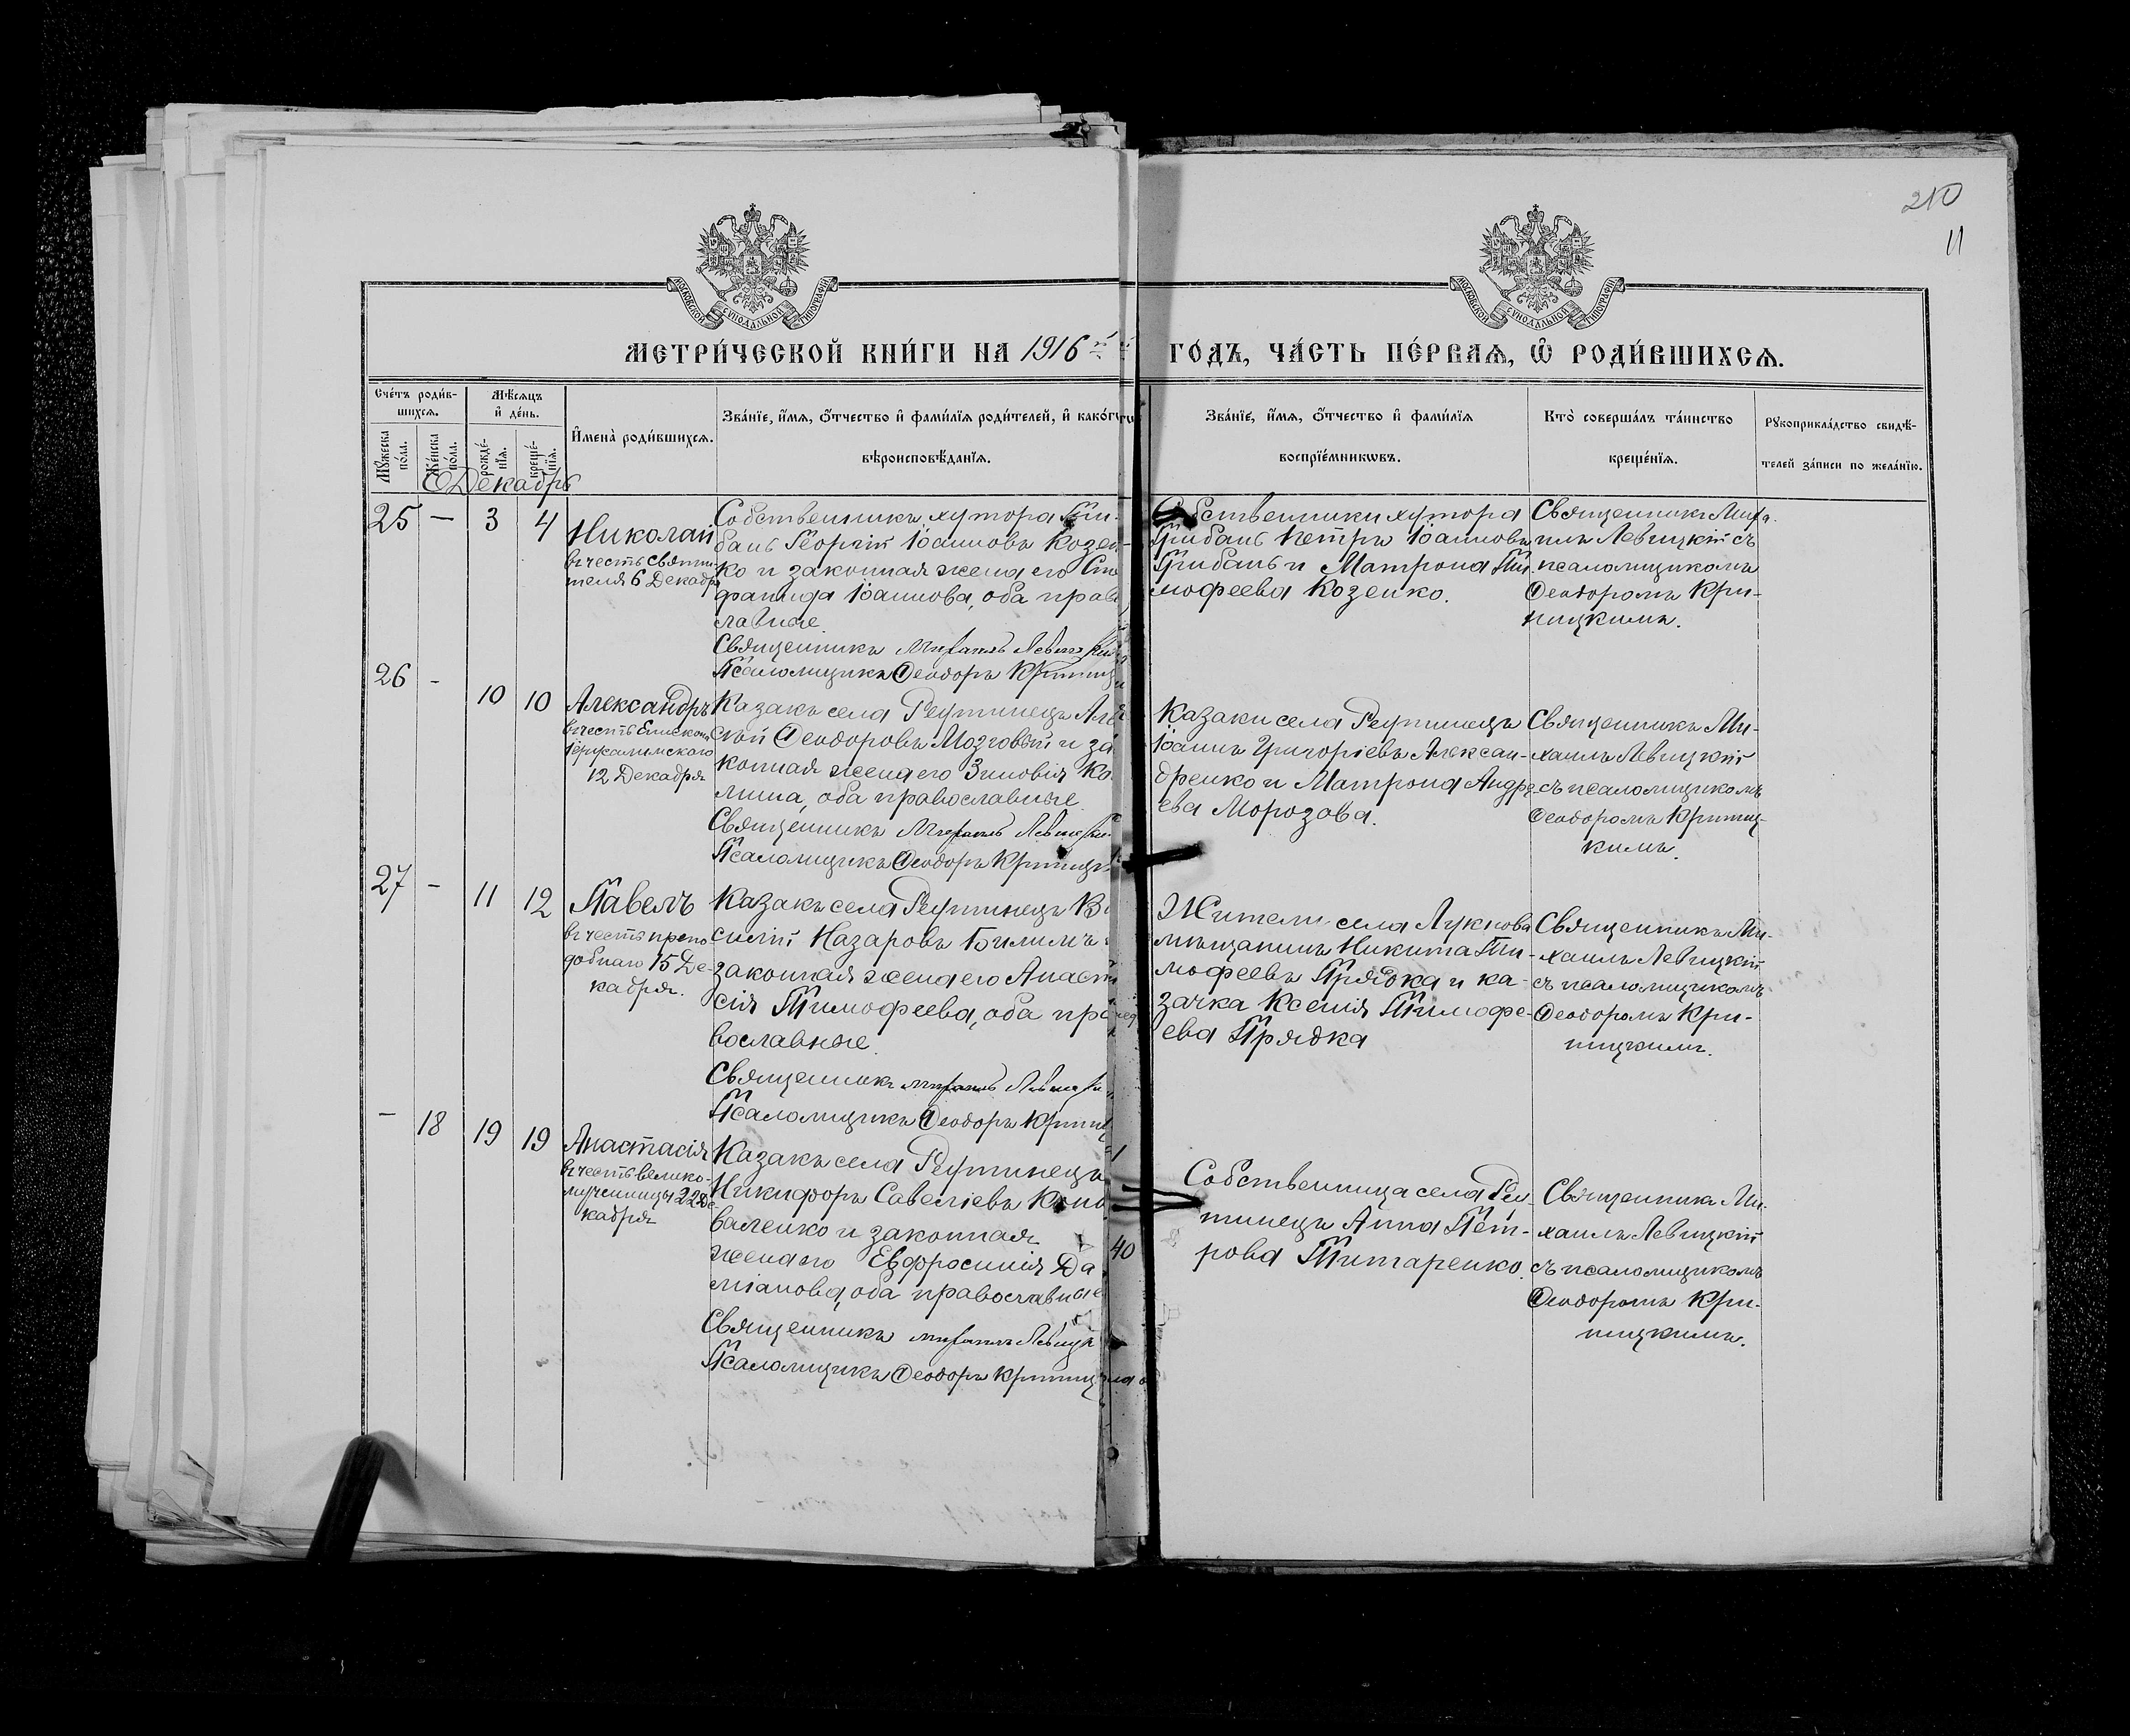 210
11
МОСКОВСКОЙ СѴНОДАЛЬНОЙ ТИПОГРАФІИ
МОСКОВСКОЙ СѴНОДАЛЬНОЙ ТИПОГРАФІИ
МЕТРИ́ЧЕСКОЙ КНИ́ГИ НА 1916й
ГО́ДЪ, ЧА́СТЬ ПЕ́РВАѦ, Ѽ РОДИ́ВШИХСѦ.
Сче́тъ роди́в-
шихсѧ.
Мꙋ́жеска по́ла.
Же́нска по́ла.
Мѣ́сѧцъ
и҆ де́нь.
рожде́-
нїѧ.
креще́-
нїѧ.
И҆мена̀ роди́вшихсѧ.
Зва́нїе, и҆́мѧ, ѻ҆́тчество и҆ фами́лїѧ роди́телей, и҆ како́гѡ
вѣроисповѣ́данїѧ.
Зва́нїе, и҆́мѧ, ѻ҆́тчество и҆ фами́лїѧ
воспрїе́мникѡвъ.
Кто̀ соверша́лъ та́инство
креще́нїѧ.
Рꙋкоприкла́дство свидѣ́-
телей за́писи по жела́нїю.
Декабрь
25 — 3 4
Николай
въ честь святи-
теля 6 Декабря
Собственникъ хутора Гри-
бань Георгій Іоанновъ Козен-
ко и законная жена его Сте
фанида Іоаннова, оба право
славные.
Священникъ Михаилъ Левицкій
Псаломщикъ Ѳеодоръ Криниц
Собственники хутора
Грибань Петръ Іоанновъ
Грибань и Матрона Ти-
мофеева Козенко.
Священникъ Миха-
илъ Левицкій съ
псаломщикомъ
Ѳеодоромъ Кри-
ницкимъ.
26 - 10 10
Александръ
въ честь Епископа
Іерусалимскаго
12 Декабря
Казакъ села Реутинецъ Але
сѣй Ѳеодоровъ Мозговый и за
конная жена его Зиновія Ка
лина, оба православные.
Священникъ Михаилъ Левицкій
Псаломщикъ Ѳеодоръ Криницк
Казаки села Реутинецъ
Іоаннъ Григоріевъ Алексан-
дренко и Матрона Андре-
ева Морозова.
Священникъ Ми-
хаилъ Левицкій
съ псаломщикомъ
Ѳеодоромъ Криниц-
кимъ.
27 - 11 12
Павелъ
въ честь препо
добнаго 15 Де-
кабря.
Казакъ села Реутинецъ Ва
силій Назаровъ Билимъ и
законная жена его Анаста
сія Тимофеева, оба пра
вославные.
Священникъ Михаилъ Левицкі
Псаломщикъ Ѳеодоръ Криниц
Жители села Лукнова
мѣщанинъ Никита Ти-
мофеевъ Прядка и ка-
зачка Ксенія Тимофе-
ева Прядка
Священникъ Ми-
хаилъ Левицкій
съ псаломщикомъ
Ѳеодоромъ Кри-
ницкимъ.
- 18 19 19
Анастасія
въ честь велико-
мученицы 22 Де
кабря
Казакъ села Реутинецъ
Никифоръ Савеліевъ Коно
валенко и законная
жена его Евфросинія Да
міанова, оба православные
Священникъ Михаилъ Левицкі
Псаломщикъ Ѳеодоръ Криниц
40
Собственница села Реу-
тинецъ Анна Пет-
рова Титаренко.
Священникъ Ми-
хаилъ Левицкій
съ псаломщикомъ
Ѳеодоромъ Кри-
ницкимъ.